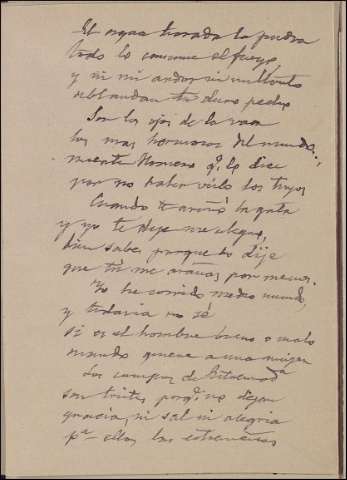 El agua horada la piedra
todo lo consume el fuego,
y ni mi andar ni mi llanto
reblandan tu duro pecho
Son los ojos de la vaca
los mas hermosos del mundo..,
miente Homero q.e lo dice
por no haber visto los tuyos
Cuando te arañó la gata
y yo te dije me alegro,
bien sabes porque lo dije
que tú me arañas por menos.
Yo he corrido medio mundo,
y todavia no sé
si es el hombre bueno o malo
cuando quiere a una mujer
Los campos de Estremad.a
son tristes porq.e no dejan
gracia, ni sal ni alegria
p.a ellos las estremeñas